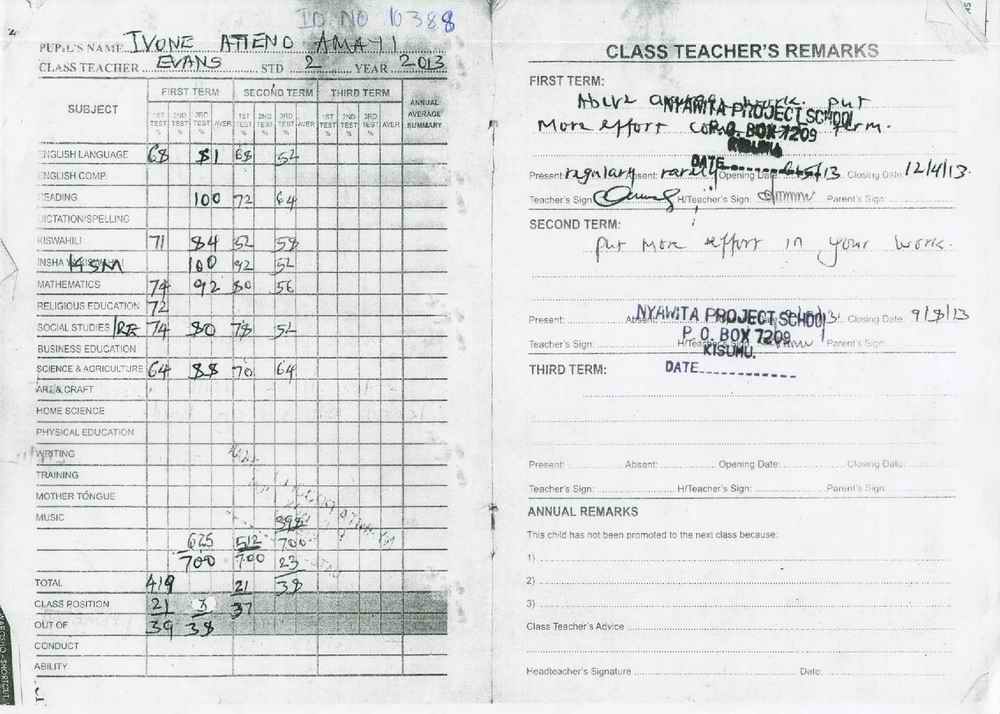 ID NO 10388
PUPIL'S NAME IVONE ATIENO AMAYI
CLASS TEACHER EVANS STD 2 YEAR 2013
SUBJECT FIRST TERM SECOND TERM THIRD TERM ANNUAL AVERAGE SUMMARY
1ST TEST % 2ND TEST % 3RD TEST % AVER 1ST TEST % 2ND TEST % 3RD TEST % AVER 1ST TEST % 2ND TEST % 3RD TEST % AVER
ENGLISH LANGUAGE 68 81 68 52
ENGLISH COMP.
READING 100 72 64
DICTATION/SPELLING
KISWAHILI 71 84 52 58
INSHA HSM 100 92 52
MATHEMATICS 74 92 80 56
RELIGIOUS EDUCATION 72
SOCIAL STUDIES /RE 74 80 78 52
BUSINESS EDUCATION
SCIENCE & AGRICULTURE 64 88 70 64
ART & CRAFT
HOME SCIENCE
PHYSICAL EDUCATION
WRITING
TRAINING
MOTHER TONGUE
MUSIC 398
625 512 700
700 700 23
TOTAL 419 21 38
CLASS POSITION 21 37
OUT OF 39 38
CONDUCT
ABILITY
CLASS TEACHER'S REMARKS
FIRST TERM:
Above average work. put
More effort term.
NYAWITA PROJECT SCHOOL
P.O. BOX 7209
KISUMU
DATE
Present: regularly Absent: rarely Opening Date: 6/5/13 Closing Date: 12/4/13
Teacher's Sign: H/Teacher's Sign: Parent's Sign:
SECOND TERM:
put More effort in your work.
NYAWITA PROJECT SCHOOL
P.O. BOX 7209
KISUMU.
DATE
Present: Absent: Closing Date: 9/8/13
Teacher's Sign: H/Teacher's Sign: Parent's Sign:
THIRD TERM:
Present: Absent: Opening Date: Closing Date:
Teacher's Sign: H/Teacher's Sign: Parent's Sign:
ANNUAL REMARKS
This child has not been promoted to the next class because:
1)
2)
3)
Class Teacher's Advice
Headteacher's Signature Date: